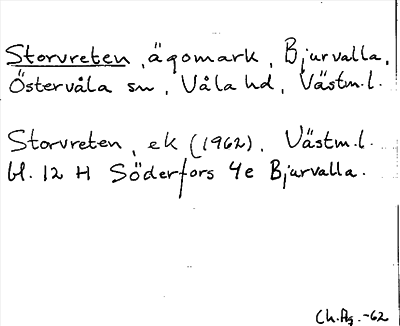 Storvreten, ägomark, Bjurvalla,
Östervåla sn, Våla hd, Västm.l.
Storvreten, ek (1962), Västm.l.
bl. 12 H Söderfors 4e Bjurvalla.
Ch.Ag. -62